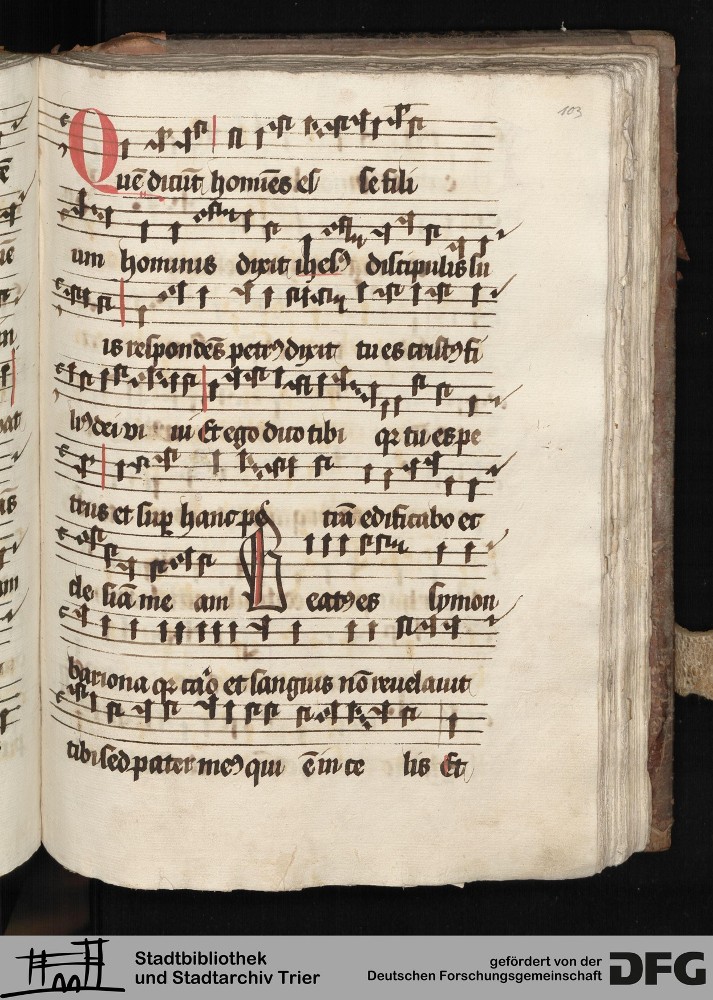 103
Quē dicūt homīes eſ ſe fili
um hominis dixit iheſꝰ diſcipulis ſu
is reſpondēs petrꝰ dixit tu es criſtꝰ fi
liꝰ dei vi ui Et ego dico tibi qꝛ tu es pe
trus et ſuꝑ hanc pe trā edificabo ec
cle ſiā me am Beatꝰ es ſymon
bariona qꝛ caro et ſanguis nō reuelauit
tibi ſed pater meꝰ qui ē in ce lis Et
Stadtbibliothek
und Stadtarchiv Trier
gefördert von der
Deutschen Forschungsgemeinschaft
DFG